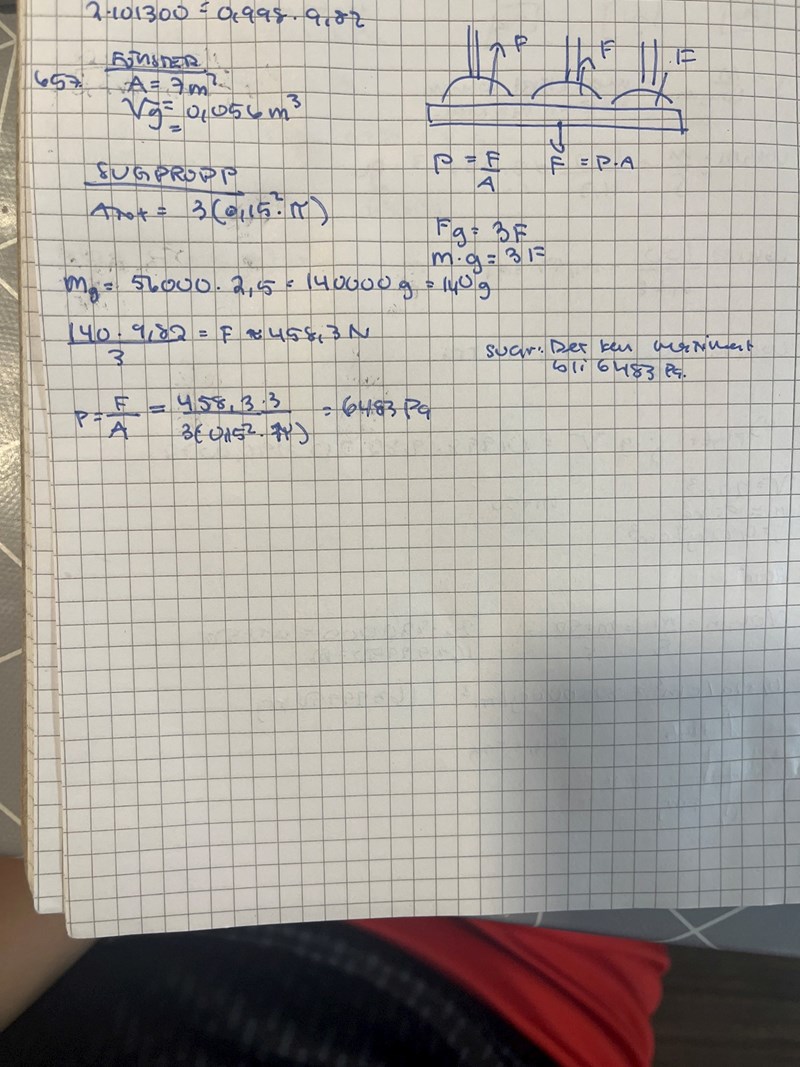 2·101300 = 0,998·9,82
657.
FÖNSTER
A = 7m²
Vg = 0,056 m³
P
F
F
P = F/A
F = P·A
SUGPROPP
Atot = 3(0,15²·π)
Fg = 3F
m·g = 3F
mg = 56000·2,5 = 140000g = 140g
140·9,82/3 = F ≈ 458,3 N
Svar: Det kan maximalt
bli 6483 Pa.
P = F/A = 458,3·3/3(0,15²·π) = 6483 Pa